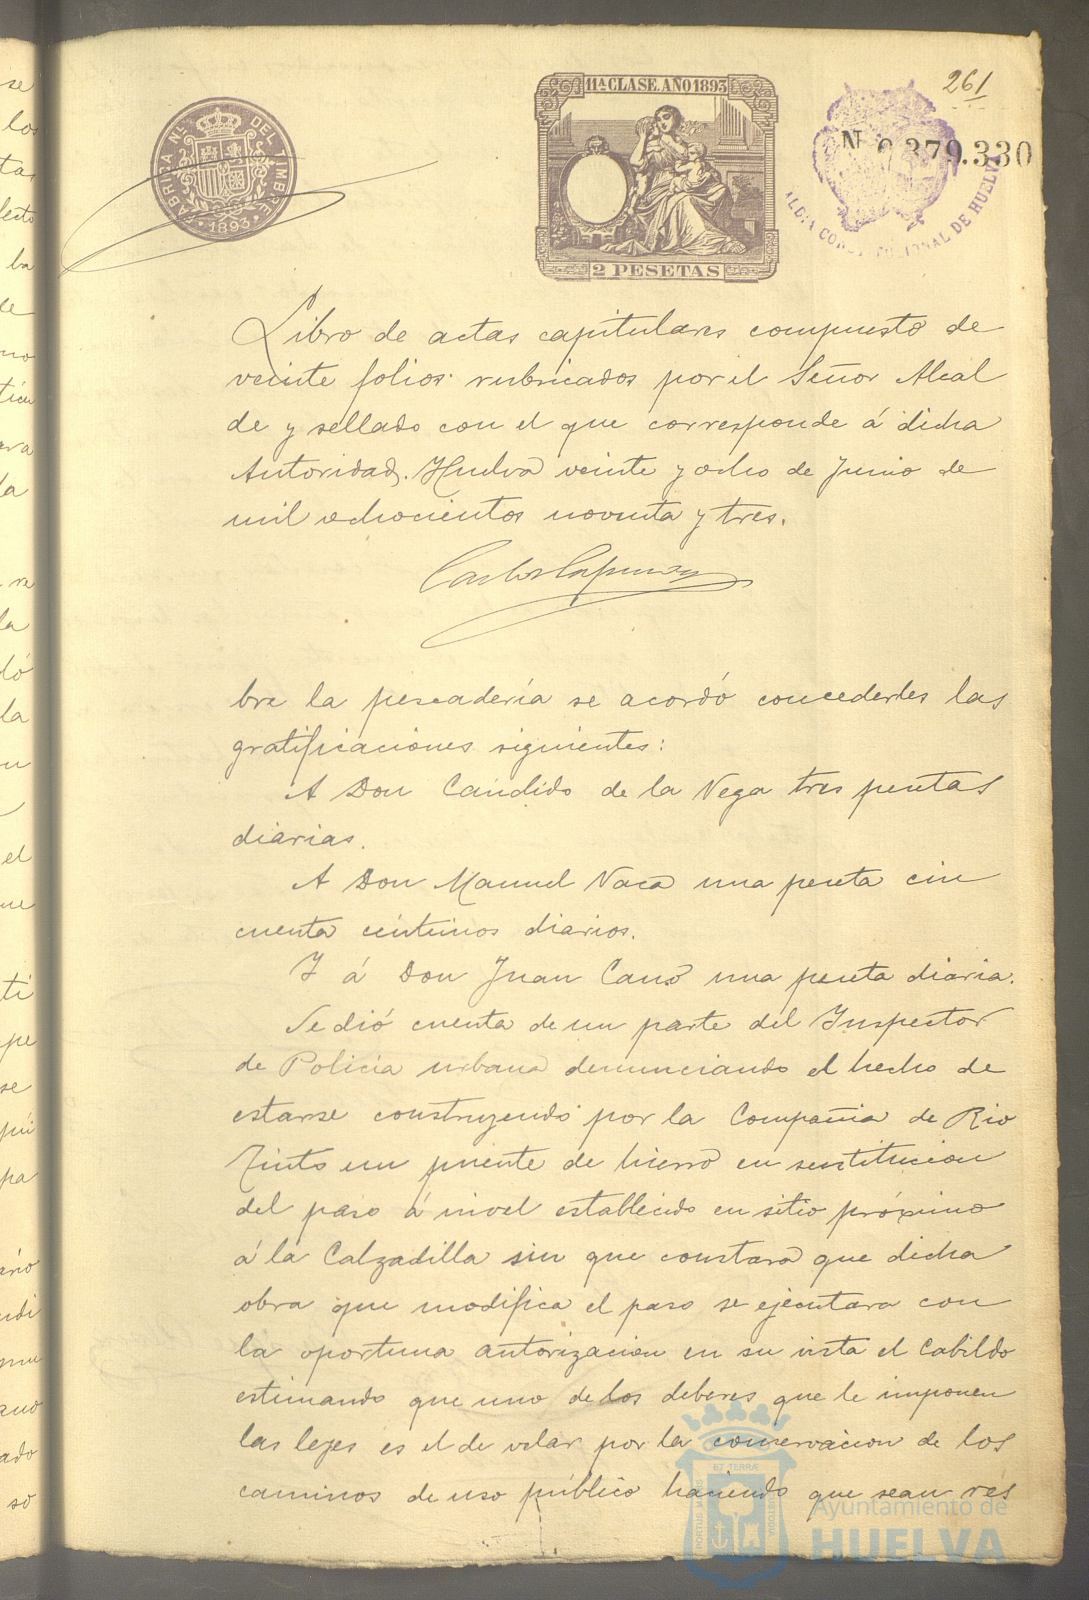 261
11ª CLASE. AÑO 1893
FABRICA NL. DEL TIMBRE
1893
379.330
2 PESETAS
DE HUELVA
Libro de actas capitulares compuesto de
veinte folios rubricados por el Señor Alcal
de y sellado con el que corresponde á dicha
Autoridad. Huelva veinte y ocho de Junio de
mil ochocientos noventa y tres.
bre la pescadería se acordó concederles las
gratificaciones siguientes:
A Don Cándido de la Vega tres pesetas
diarias.
A Don Manuel Vaca una peseta cin
cuenta céntimos diarios.
Y á Don Juan Cano una peseta diaria.
Se dió cuenta de un parte del Inspector
de Policía urbana denunciando el hecho de
estarse construyendo por la Compañia de Rio
Tinto un puente de hierro en sustitucion
del paso á nivel establecido en sitio próximo
á la Calzadilla sin que constara que dicha
obra que modifica el paso se ejecutara con
la oportuna autorización en su vista el Cabildo
estimando que uno de los deberes que le imponen
las leyes es el de velar por la conservacion de los
caminos de uso público haciendo que sean res
Ayuntamiento de
HUELVA